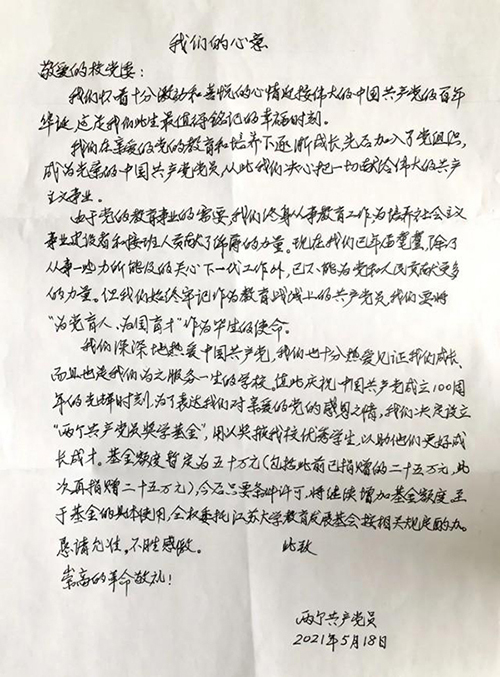 我们的心意
敬爱的校党委：
我们怀着十分激动和喜悦的心情迎接伟大的中国共产党的百年
华诞，这是我们此生最值得铭记的幸福时刻。
我们在亲爱的党的教育和培养下逐渐成长先后加入了党组织，
成为光荣的中国共产党党员，从此我们决心把一切献给伟大的共产
主义事业。
由于党的教育事业的需要，我们终身从事教育工作，为培养社会主义
事业建设者和接班人贡献了绵薄的力量。现在我们已年届耄耋，除了
从事一些力所能及的关心下一代工作外，已不能为党和人民贡献更多
的力量。但我们始终牢记作为教育战线上的共产党员，我们要将
“为党育人、为国育才”作为毕生的使命。
我们深深地热爱中国共产党，我们也十分热爱见证我们成长、
而且也是我们为之服务一生的学校。值此庆祝中国共产党成立100周
年的光辉时刻，为了表达我们对亲爱的党的感恩之情，我们决定设立
“两个共产党员奖学基金”，用以奖掖我校优秀学生，以助他们更好成
长成才。基金额度暂定为五十万元（包括此前已捐赠的二十五万元，此
次再捐赠二十五万元），今后只要条件许可，将继续增加基金额度。至
于基金的具体使用，全权委托江苏大学教育发展基会按相关规定酌办。
恳请允准。不胜感激。 此致
崇高的革命敬礼！
两个共产党员
2021年5月18日